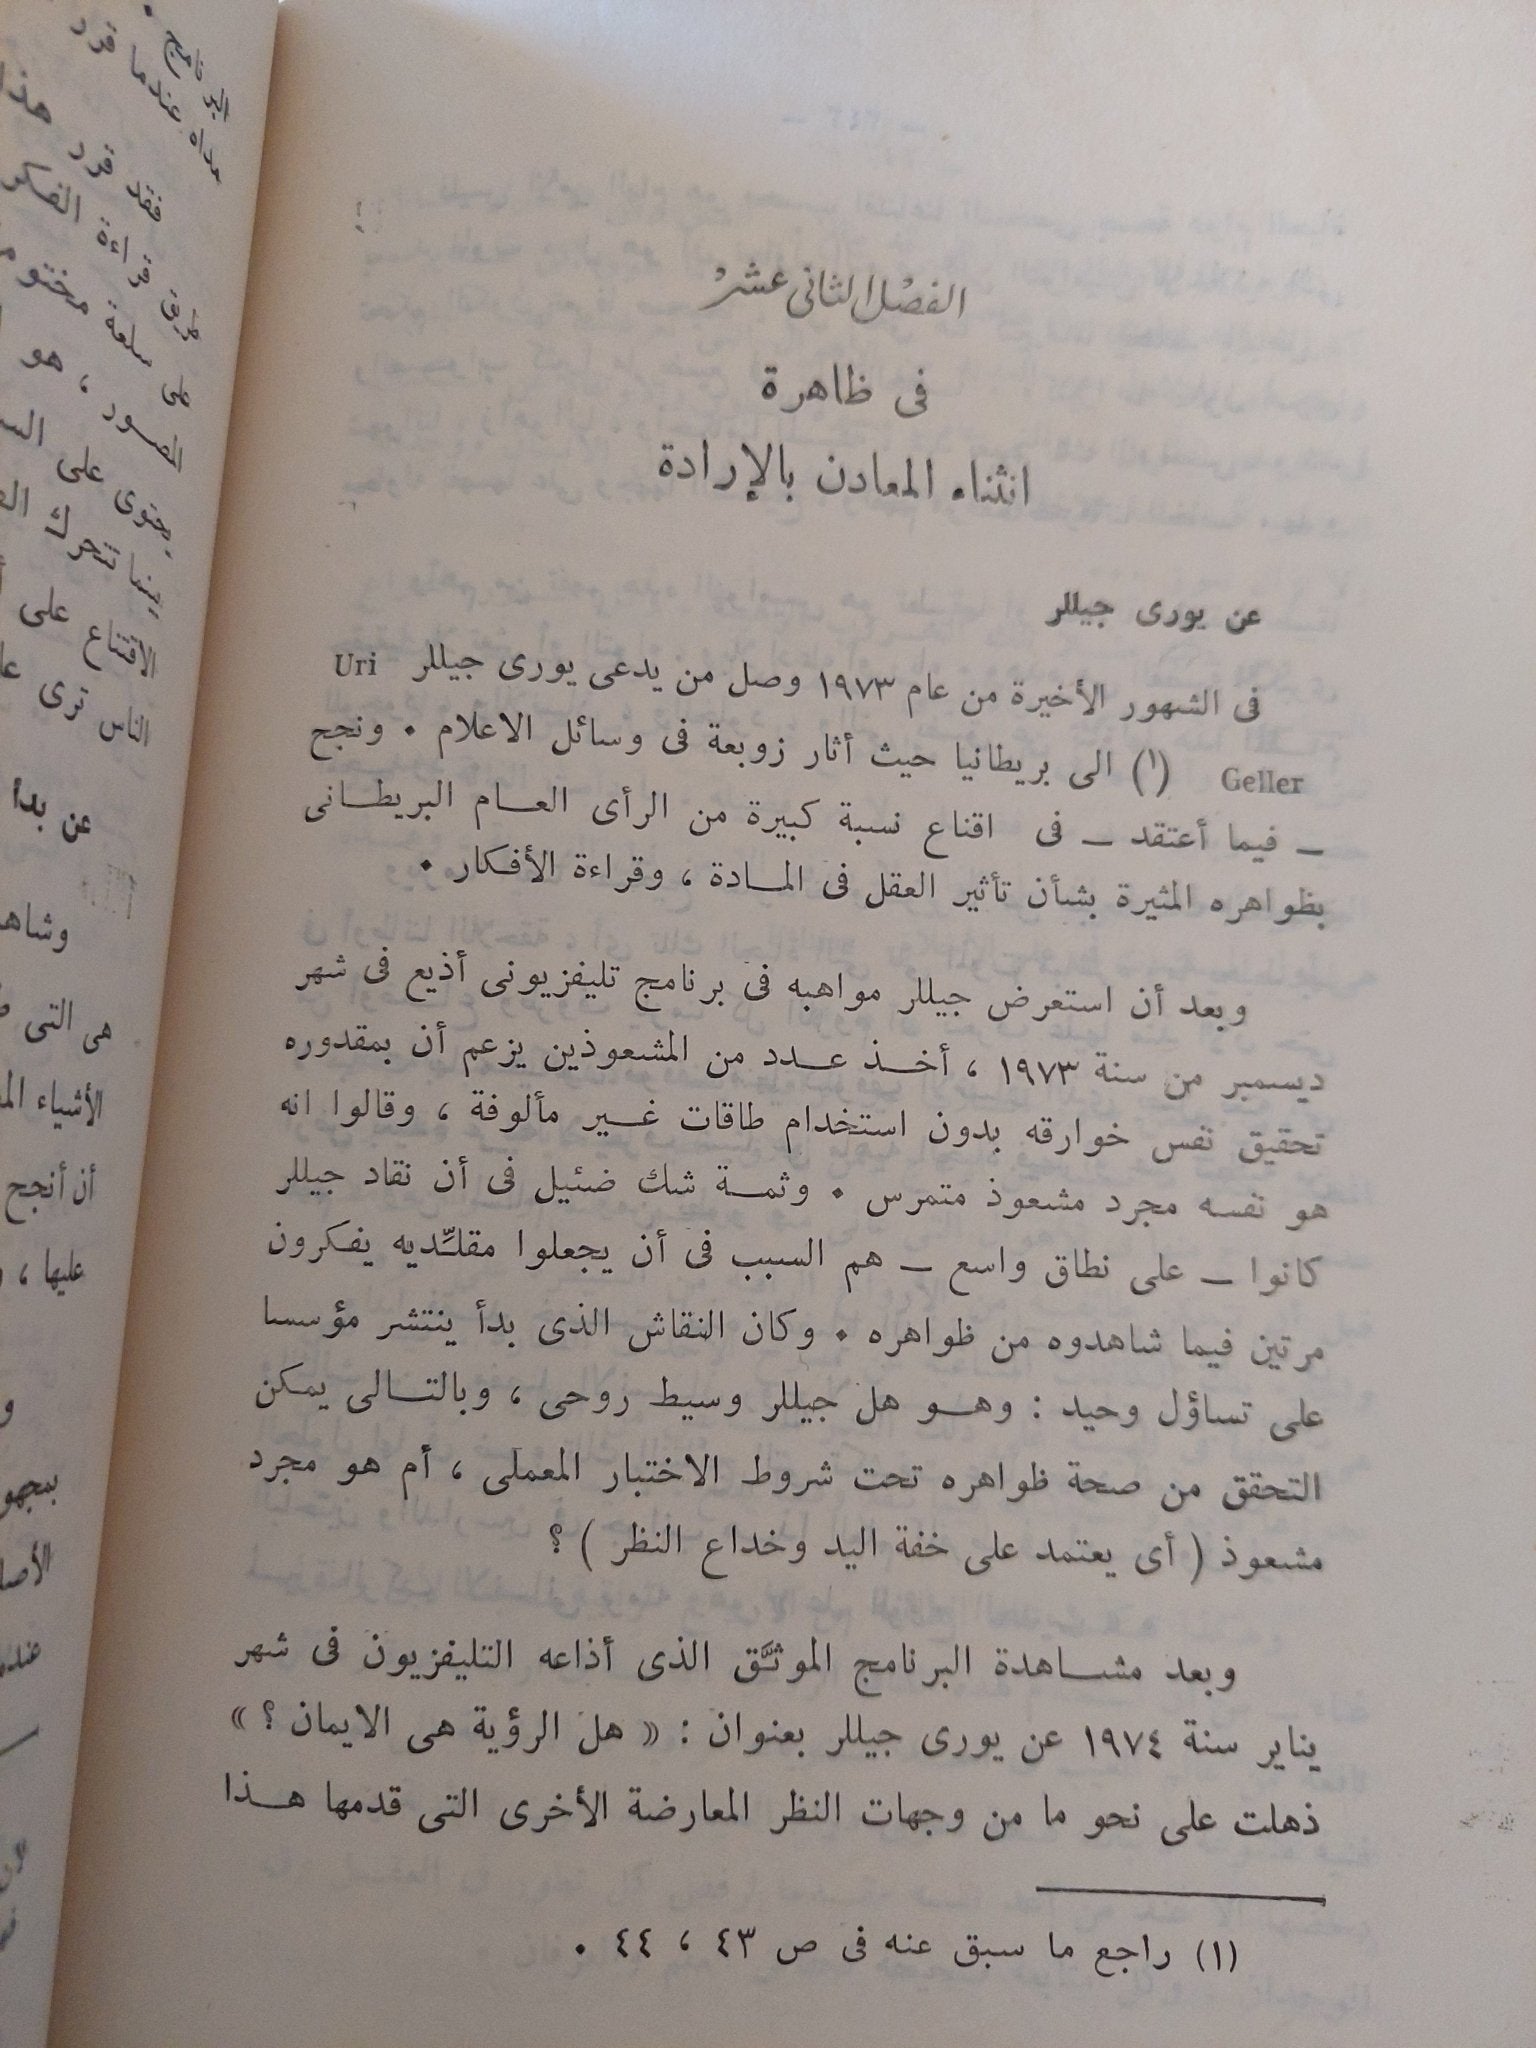 الفصل الثانى عشر
فى ظاهرة
انثناء المعادن بالإرادة
عن يورى جيللر
فى الشهور الأخيرة من عام ١٩٧٣ وصل من يدعى يورى جيللر Uri
Geller (١) الى بريطانيا حيث أثار زوبعة فى وسائل الاعلام ٠ ونجح
ــ فيما أعتقد ــ فى اقناع نسبة كبيرة من الرأى العام البريطانى
بظواهره المثيرة بشأن تأثير العقل فى المادة ، وقراءة الأفكار ٠
وبعد أن استعرض جيللر مواهبه فى برنامج تليفزيونى أذيع فى شهر
ديسمبر من سنة ١٩٧٣ ، أخذ عدد من المشعوذين يزعم أن بمقدوره
تحقيق نفس خوارقه بدون استخدام طاقات غير مألوفة ، وقالوا انه
هو نفسه مجرد مشعوذ متمرس ٠ وثمة شك ضئيل فى أن نقاد جيللر
كانوا ــ على نطاق واسع ــ هم السبب فى أن يجعلوا مقلِّديه يفكرون
مرتين فيما شاهدوه من ظواهره ٠ وكان النقاش الذى بدأ ينتشر مؤسسا
على تساؤل وحيد : وهو هل جيللر وسيط روحى ، وبالتالى يمكن
التحقق من صحة ظواهره تحت شروط الاختبار المعملى ، أم هو مجرد
مشعوذ ( أى يعتمد على خفة اليد وخداع النظر ) ؟
وبعد مشاهدة البرنامج الموثَّق الذى أذاعه التليفزيون فى شهر
يناير سنة ١٩٧٤ عن يورى جيللر بعنوان : « هل الرؤية هى الايمان ؟ »
ذهلت على نحو ما من وجهات النظر المعارضة الأخرى التى قدمها هذا
(١) راجع ما سبق عنه فى ص ٤٣ ، ٤٤ ٠
البرنامج ٠
مداه عندما قرر
فقد قرر هذا
طريق قراءة الفكر
على سلعة
الصور ، هو
يحتوى على
بينما تتحرك
الاقتناع على
الناس ترى
عن بدأ
هى التى
الأشياء
أن أنجح
عليها ،